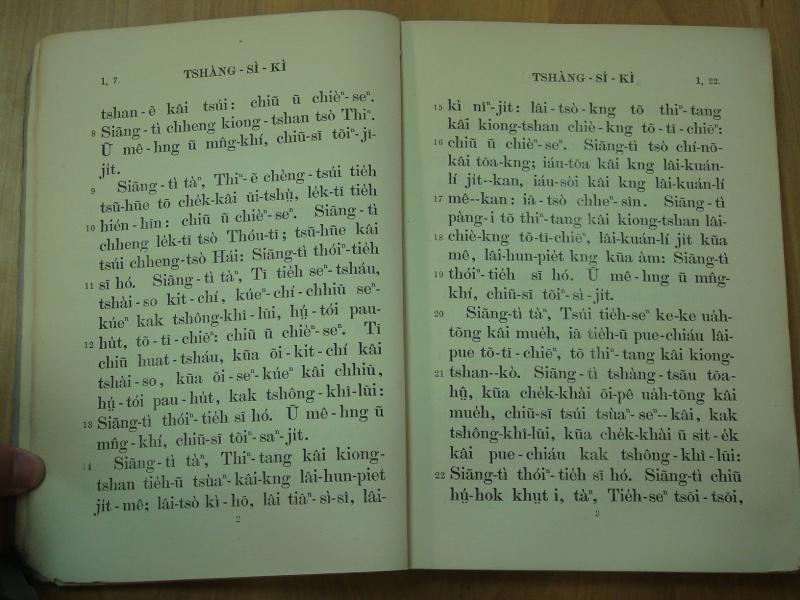 1, 7.
TSHÀNG - SÌ - KÌ
tshan-ē kâi tsúi: chiũ ũ chièⁿ-seⁿ.
8 Siāng-tì chheng kiong-tshan tsò Thiⁿ.
Ũ mê-hng ũ mn̂g-khí, chiũ-sī tōiⁿ-jī-
ji̍t.
9 Siāng-tì tàⁿ, Thiⁿ-ē chèng-tsúi tie̍h
tsũ-hūe tõ che̍k-kâi ùi-tshṳ̀, le̍k-tī tie̍h
10 hién-hīn: chiũ ũ chièⁿ-seⁿ. Siāng-tì
chheng le̍k-tī tsò Thóu-tī; tsũ-hūe kâi
tsúi chheng-tsò Hái: Siāng-tì thóiⁿ-tie̍h
11 sĩ hó. Siāng-tì tàⁿ, Tī tie̍h seⁿ-tsháu,
tshài-so kit-chí, kúeⁿ-chí-chhiũ seⁿ-
kúeⁿ kak tshông-khî-lũi, hṳ́-tói pau-
12 hu̍t, tõ-tī-chiẽⁿ: chiũ ũ chièⁿ-seⁿ. Tī
chiũ huat-tsháu, kũa õi-kit-chí kâi
tshài-so, kũa õi-seⁿ-kúeⁿ kâi chhiũ,
hṳ́-tói pau-hu̍t, kak tshông-khî-lũi:
13 Siāng-tì thóiⁿ-tie̍h sĩ hó. Ũ mê-hng ũ
mn̂g-khí, chiũ-sī tōiⁿ-saⁿ-ji̍t.
14 Siāng-tì tàⁿ, Thiⁿ-tang kâi kiong-
tshan tie̍h-ũ tsùaⁿ-kâi-kng lâi-hun-piet
ji̍t-mê; lâi-tsò kì-hō, lâi tiāⁿ-sì-sî, lâi-
2
TSHÀNG - SÌ - KÌ
1, 22.
15 kì nîⁿ-ji̍t: lâi-tsò-kng tõ thiⁿ-tang
kâi kiong-tshan chiè-kng tõ-tī-chiẽⁿ:
16 chiũ ũ chièⁿ-seⁿ. Siāng-tì tsò chí-nõ-
kâi tōa-kng; iáu-tōa kâi kng lâi-kuán-
lí ji̍t--kan, iáu-sòi kâi kng lâi-kuán-lí
17 mê--kan: iā-tsò chheⁿ-sîn. Siāng-tì
pàng-i tõ thiⁿ-tang kâi kiong-tshan lâi-
18 chiè-kng tõ-tī-chiẽⁿ, lâi-kuán-lí ji̍t kũa
mê, lâi-hun-pie̍t kng kũa àm: Siāng-tì
19 thóiⁿ-tie̍h sĩ hó. Ũ mê-hng ũ mn̂g-
khí, chiũ-sī tōiⁿ-sì-ji̍t.
20 Siāng-tì tàⁿ, Tsúi tie̍h-seⁿ ke-ke ua̍h-
tõng kâi mue̍h, iā tie̍h-ũ pue-chiáu lâi-
pue tõ-tī-chiẽⁿ, tõ thiⁿ-tang kâi kiong-
21 tshan--kò. Siāng-tì tshàng-tsãu tōa-
hṳ̂, kũa che̍k-khài õi-pê ua̍h-tõng kâi
mue̍h, chiũ-sī tsúi tsùaⁿ-seⁿ--kâi, kak
tshông-khî-lũi, kũa che̍k-khài ũ sit-e̍k
kâi pue-chiáu kak tshông-khî-lũi:
22 Siāng-tì thóiⁿ-tie̍h sĩ hó. Siāng-tì chiũ
hṳ́-hok khṳt i, tàⁿ, Tie̍h-seⁿ tsõi-tsõi,
3